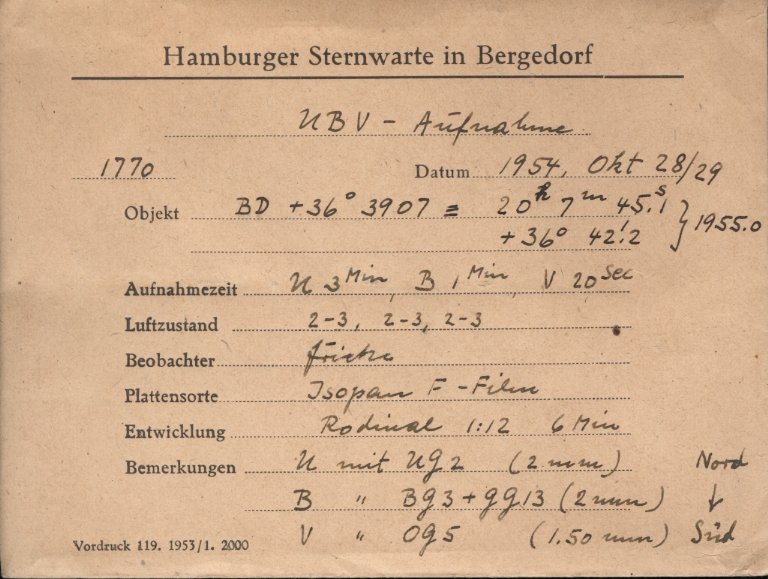 Hamburger Sternwarte in Bergedorf
UBV - Aufnahme
1770 Datum 1954, Okt 28/29
Objekt BD +36° 3907 = 20ʰ 7ᵐ 45ˢ.1 } 1955.0
+36° 42'.2
Aufnahmezeit U 3 Min, B 1 Min, V 20 Sec
Luftzustand 2-3, 2-3, 2-3
Beobachter Fricke
Plattensorte Isopan F - Film
Entwicklung Rodinal 1:12 6 Min
Bemerkungen U mit UG2 (2 mm) Nord
B " BG3 + GG13 (2 mm) ↓
V " OG5 (1.50 mm) Süd
Vordruck 119. 1953/1. 2000